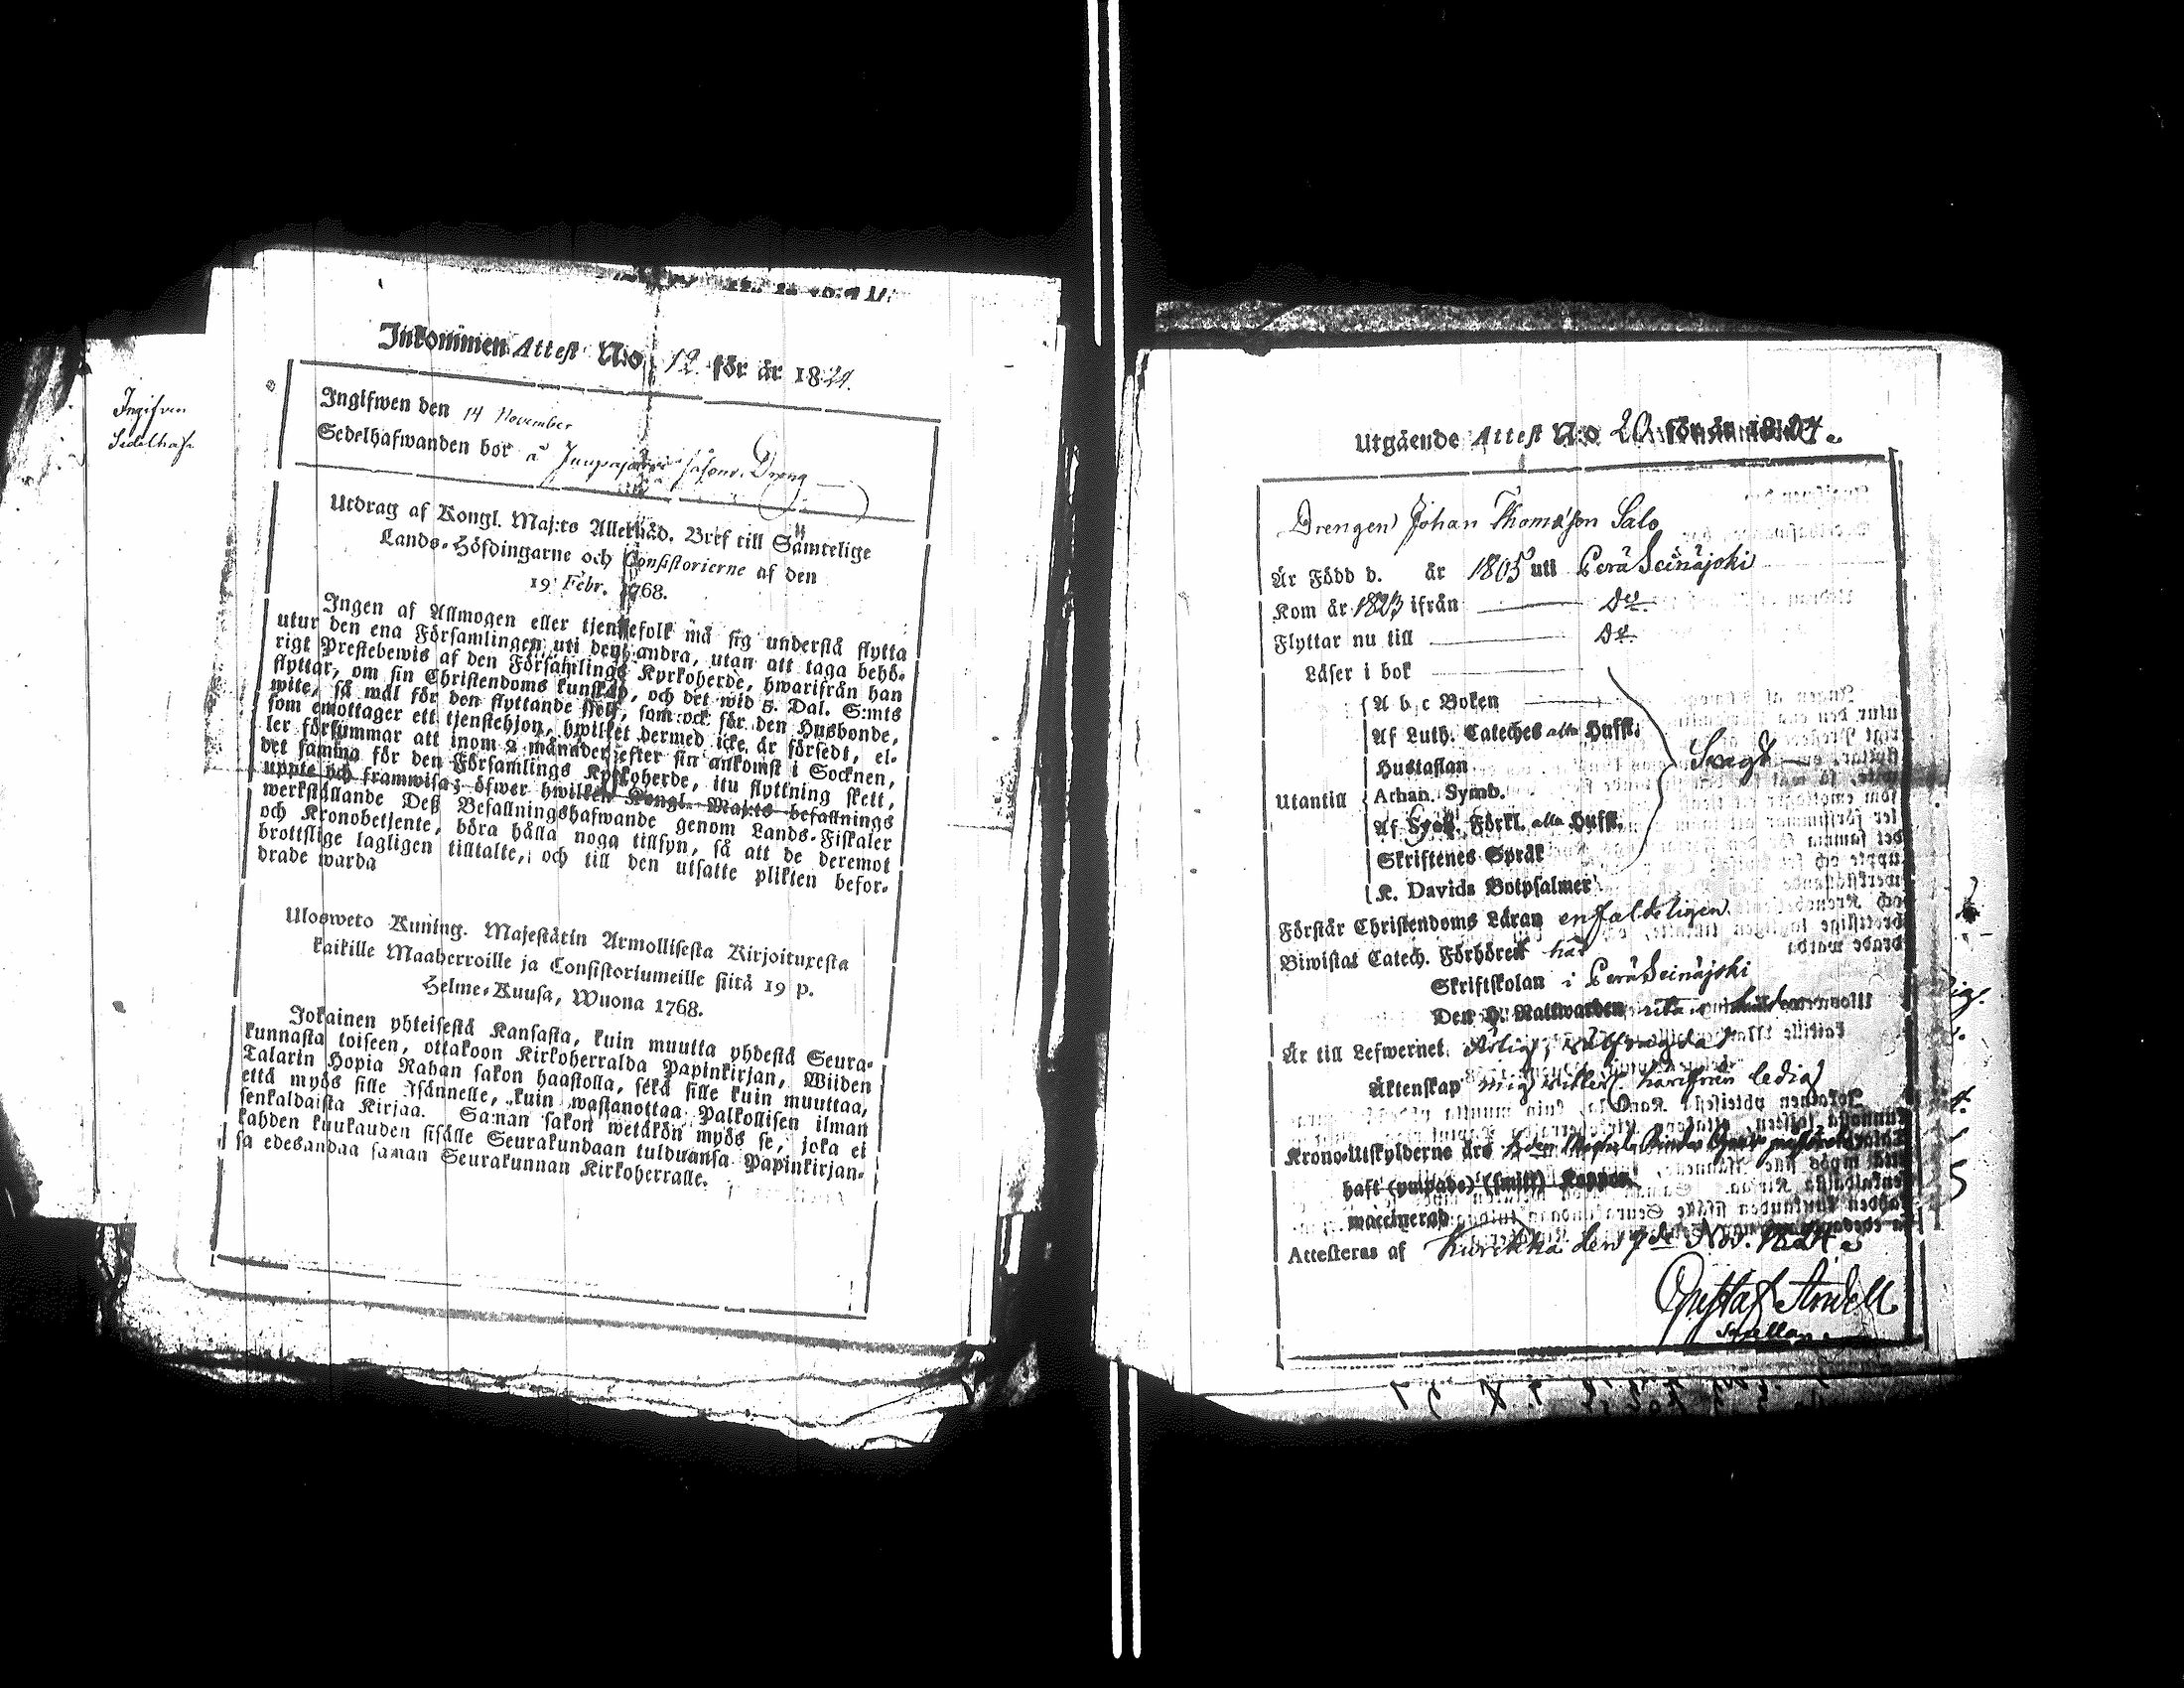 Ingifven
Sedelhafv
Inkommen Attest N:o 12 för år 1824.
Ingifwen den 14 November
Sedelhafwanden bor å Dreng
Utdrag af Kongl. Maj:ts Allernåd. Bref till Samtelige
Lands-Höfdingarne och Consistorierne af den
19 Febr. 1768.
Ingen af Allmogen eller tjenstefolk må sig understå flytta
utur den ena Församlingen uti den andra, utan att taga behö-
rigt Prestebewis af den Församlings Kyrkoherde, hwarifrån han
flyttar, om sin Christendoms kunskap, och det wid 5. Dal. S:mts
wite, så wäl för den flyttande sjelf, som ock för den Husbonde,
som emottager ett tjenstehjon, hwilket dermed icke är försedt, el-
ler försummar att inom 2 månader efter sin ankomst i Socknen,
det samma för den Församlings Kyrkoherde, itu flyttning skett,
uppte och framwisa; öfwer hwilken Kongl. Maj:ts befallnings
werkställande Deß Befallningshafwande genom Lands-Fiskaler
och Kronobetjente, böra hålla noga tillsyn, så att de deremot
brottslige lagligen tilltalte, och till den utsatte plikten befor-
drade warda
Ulosweto Kuning. Majestätin Armollisesta Kirjoituxesta
kaikille Maaherroille ja Consistoriumeille siitä 19 p.
Helme-Kuusa, Wuona 1768.
Jokainen yhteisestä Kansasta, kuin muutta yhdestä Seura-
kunnasta toiseen, ottakoon Kirkoherralda Papinkirjan, Wiiden
Talarin Hopia Rahan sakon haastolla, sekä sille kuin muuttaa,
että myös sille Isännelle, kuin wastanottaa Palkollisen ilman
senkaldaista Kirjaa. Saman sakon wetäkön myös se, joka ei
kahden kuukauden sisälle Seurakundaan tulduansa Papinkirjan-
sa edesandaa saman Seurakunnan Kirkoherralle.
Utgående Attest N:o 20 för år 1824.
Drengen Johan Thomasson Salo
Är Född d. år 1805 uti Perä Seinäjoki
Kom år 1823 ifrån Do
Flyttar nu till Do
Läser i bok
A b c Boken
Af Luth. Cateches alla Hufst.
Hustaflan Svagt
Utantill Athan. Symb.
Af Sveb. Förkl. alla Hufst.
Skriftenes Språk
K. Davids Botpsalmer
Förstår Christendoms Läran enfaldeligen
Biwistat Catech. Förhören här
Skriftskolan i Perä Seinäjoki
Den H. Nattwarden
Är till Lefwernet ärlig,
Äktenskap mig witterl. härifrån ledig
Krono-Utskylderne års
haft (ympade) (smitt) Koppor
waccinerad
Attesteras af Kurikka den Nov. 1824
Gustaf
Sacellan.